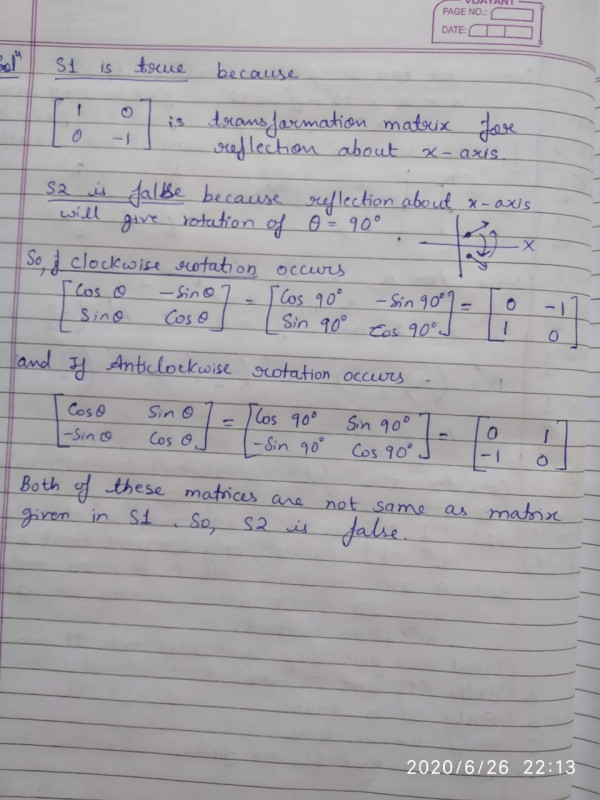 VIJAYANT
PAGE NO.:
DATE:
Solⁿ S1 is true because
[1 0
0 -1] is transformation matrix for
reflection about x-axis.
S2 is false because reflection about x-axis
will give rotation of θ = 90°
X
So, if clockwise rotation occurs
[Cos θ -Sinθ
Sinθ Cosθ] = [Cos 90° -Sin 90°
Sin 90° Cos 90°] = [0 -1
1 0]
and If Anticlockwise rotation occurs.
[Cosθ Sin θ
-Sinθ Cos θ] = [Cos 90° Sin 90°
-Sin 90° Cos 90°] = [0 1
-1 0]
Both of these matrices are not same as matrix
given in S1. So, S2 is false.
2020/6/26 22:13